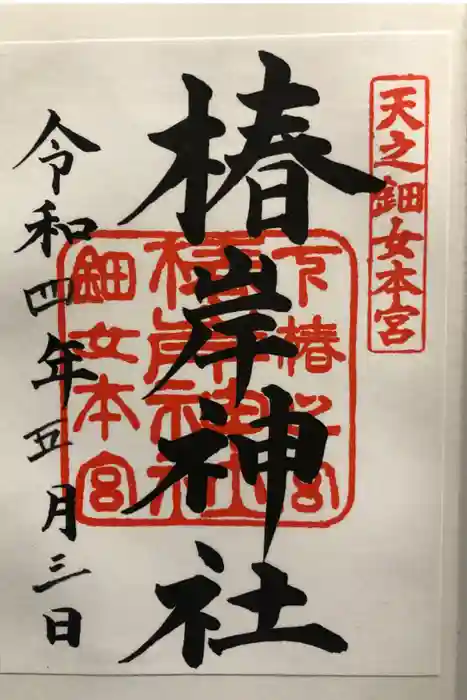 天之鈿女本宮
椿岸神社
下椿之宮
椿岸神社
鈿女本宮
令和四年五月三日